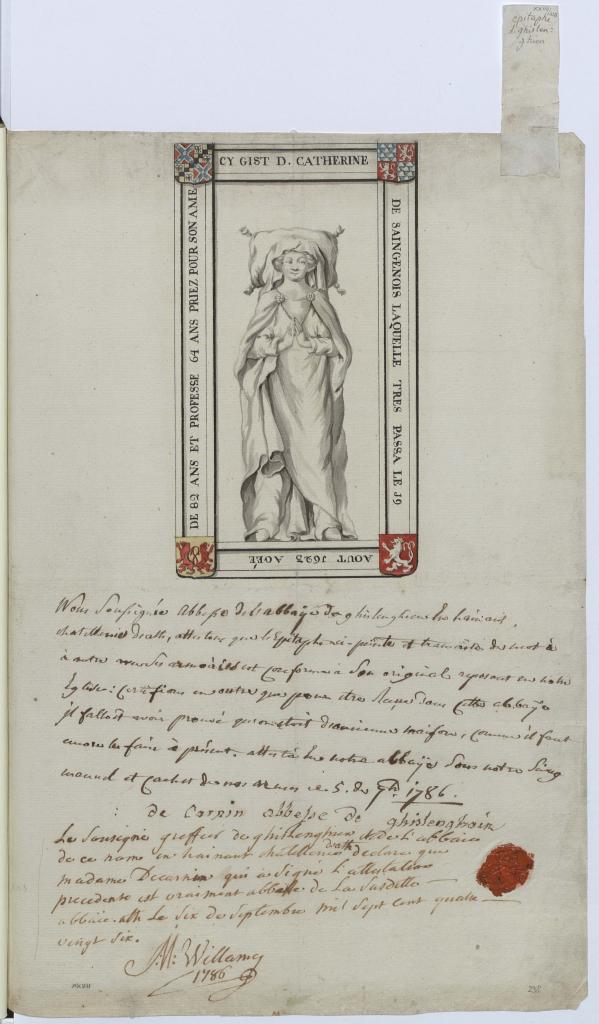 epitaphe
d'ghislen-
ghien
CY GIST D. CATHERINE
DE SAINGENOIS LAQUELLE TRES PASSA LE J9
AOUT J625 AGÉE
DE 82 ANS ET PROFESSE 64 ANS PRIEZ POUR SON AME
Nous Soussignée Abbesse de l'abbaye de ghislenghien en hainaut,
chatellenie d'ath, attestons que l'Epitaphe ci-peinte et transcrite de mot à
à autre armoiries est conforme à Son original reposant en notre
Eglise: Certifions en outre que pour être Reçue dans Cette abbaye
il falloit avoir prouvé qu'on étoit d'ancienne maison, Comme il faut
encore le faire à présent. attesté En notre abbaye Sous notre Seing
manuel et Cachet de nos armes ce 5. de 7bre 1786.
: de Carnin abbesse de ghislenghein
Le Soussigné greffier de ghislenghien & de L'abbaie
de ce nom en hainaut châtellenie d'ath déclare que
madame Decarnin qui a Signé L'attestation
precedente est vraiment abbesse de La Susditte
abbaie. ath Le Six de Septembre mil Sept Cent quatre
vingt Six.
M: Willamez
1786
XXVIII
238